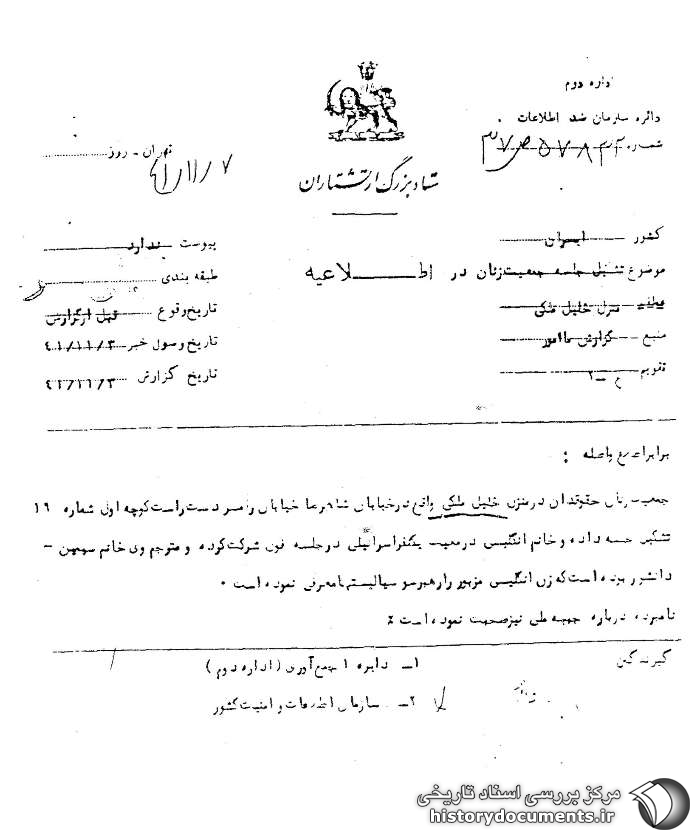 اداره دوم
دائره سازمان ضد اطلاعات
شماره
تهران - روز ۴۱/۱۱/۷
ستاد بزرگ ارتشتاران
کشور ایران
پیوست ندارد
موضوع تشکیل جلسه جمعیت زنان در
اطلاعیه
طبقه بندی
منزل خلیل ملکی
تاریخ وقوع قبل از گزارش
منبع گزارش مامور
تاریخ وصول خبر ۴۱/۱۱/۳
تقویم ۲
تاریخ گزارش ۴۱/۱۱/۳
برابر اطلاع واصله :
جمعیت زنان حقوقدان در منزل خلیل ملکی واقع در خیابان شاهرضا خیابان رامسر دست راست کوچه اول شماره ۱۶
تشکیل جلسه داده و خانم انگلیسی در معیت یکنفر اسرائیلی در جلسه فوق شرکت کرده و مترجم وی خانم سیمین -
دانشور بوده است که زن انگلیسی مزبور را رهبر سوسیالیستها معرفی نموده است ۰
نامبرده درباره جبهه ملی نیز صحبت نموده است ٪
گیرندگان
۱- دایره ۱ جمع آوری ( اداره دوم )
۲- سازمان اطلاعات و امنیت کشور
مرکز بررسی اسناد تاریخی
historydocuments.ir